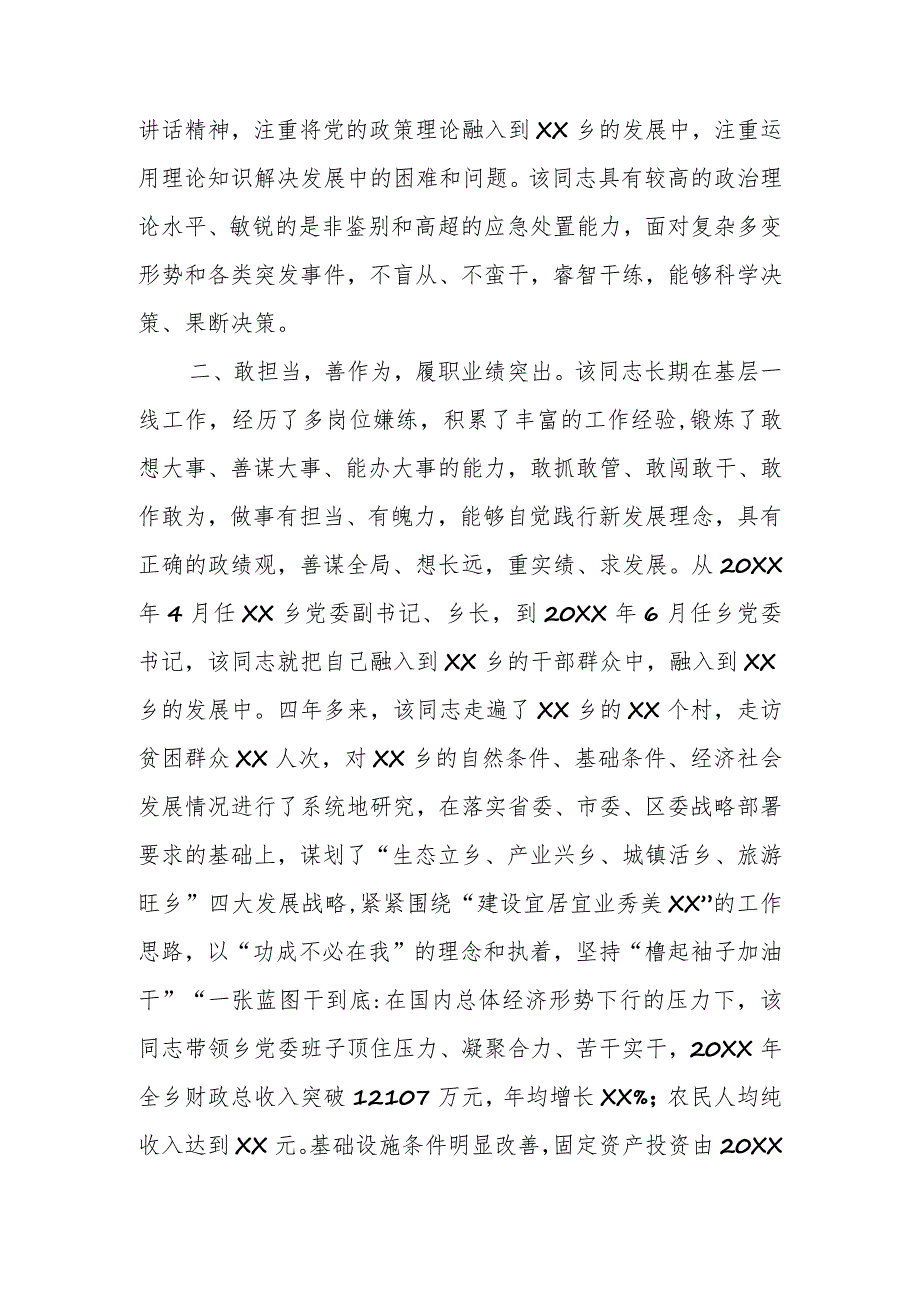 讲话精神，注重将党的政策理论融入到XX乡的发展中，注重运
用理论知识解决发展中的困难和问题。该同志具有较高的政治理
论水平、敏锐的是非鉴别和高超的应急处置能力，面对复杂多变
形势和各类突发事件，不盲从、不蛮干，睿智干练，能够科学决
策、果断决策。
二、敢担当，善作为，履职业绩突出。该同志长期在基层一
线工作，经历了多岗位嫌练，积累了丰富的工作经验,锻炼了敢
想大事、善谋大事、能办大事的能力，敢抓敢管、敢闯敢干、敢
作敢为，做事有担当、有魄力，能够自觉践行新发展理念，具有
正确的政绩观，善谋全局、想长远，重实绩、求发展。从20XX
年4月任XX乡党委副书记、乡长，到20XX年6月任乡党委
书记，该同志就把自己融入到XX乡的干部群众中，融入到XX
乡的发展中。四年多来，该同志走遍了XX乡的XX个村，走访
贫困群众XX人次，对XX乡的自然条件、基础条件、经济社会
发展情况进行了系统地研究，在落实省委、市委、区委战略部署
要求的基础上，谋划了“生态立乡、产业兴乡、城镇活乡、旅游
旺乡”四大发展战略,紧紧围绕“建设宜居宜业秀美XX”的工作
思路，以“功成不必在我”的理念和执着，坚持“橹起袖子加油
干”“一张蓝图干到底:在国内总体经济形势下行的压力下，该
同志带领乡党委班子顶住压力、凝聚合力、苦干实干，20XX年
全乡财政总收入突破12107万元，年均增长XX%；农民人均纯
收入达到XX元。基础设施条件明显改善,固定资产投资由20XX